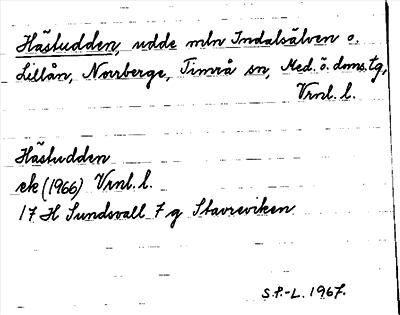 Hästudden, udde mln Indalsälven o.
Lillån, Norrberge, Timrå sn, Med. ö. dms. tg,
Vrnl. l.
Hästudden
ek (1966) Vrnl. l.
17 H Sundsvall 7 g Stavreviken
S.F.-L. 1967.